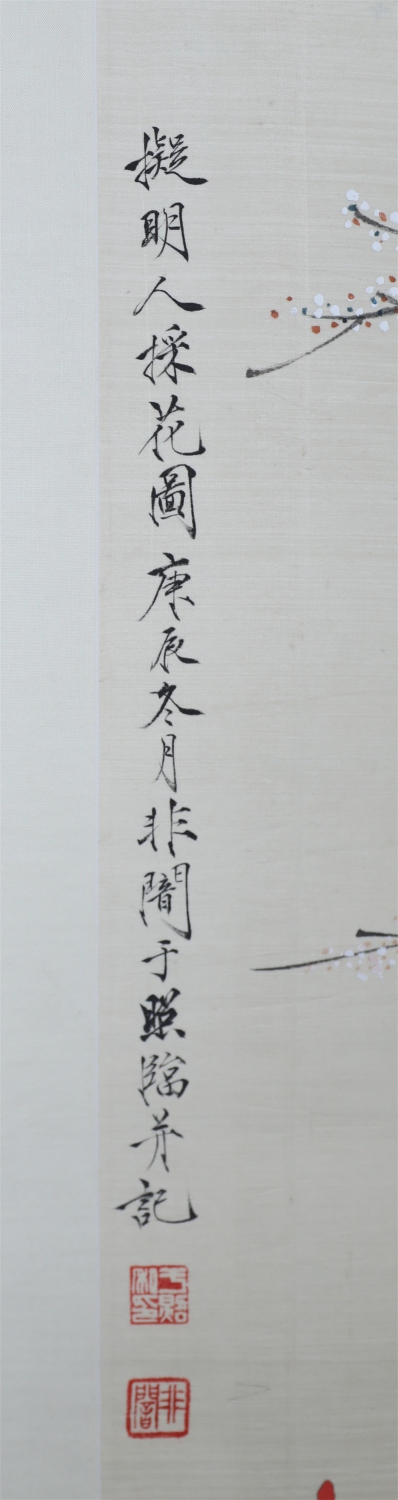 擬明人採花圖庚辰冬月非闇于照臨并記
非闇